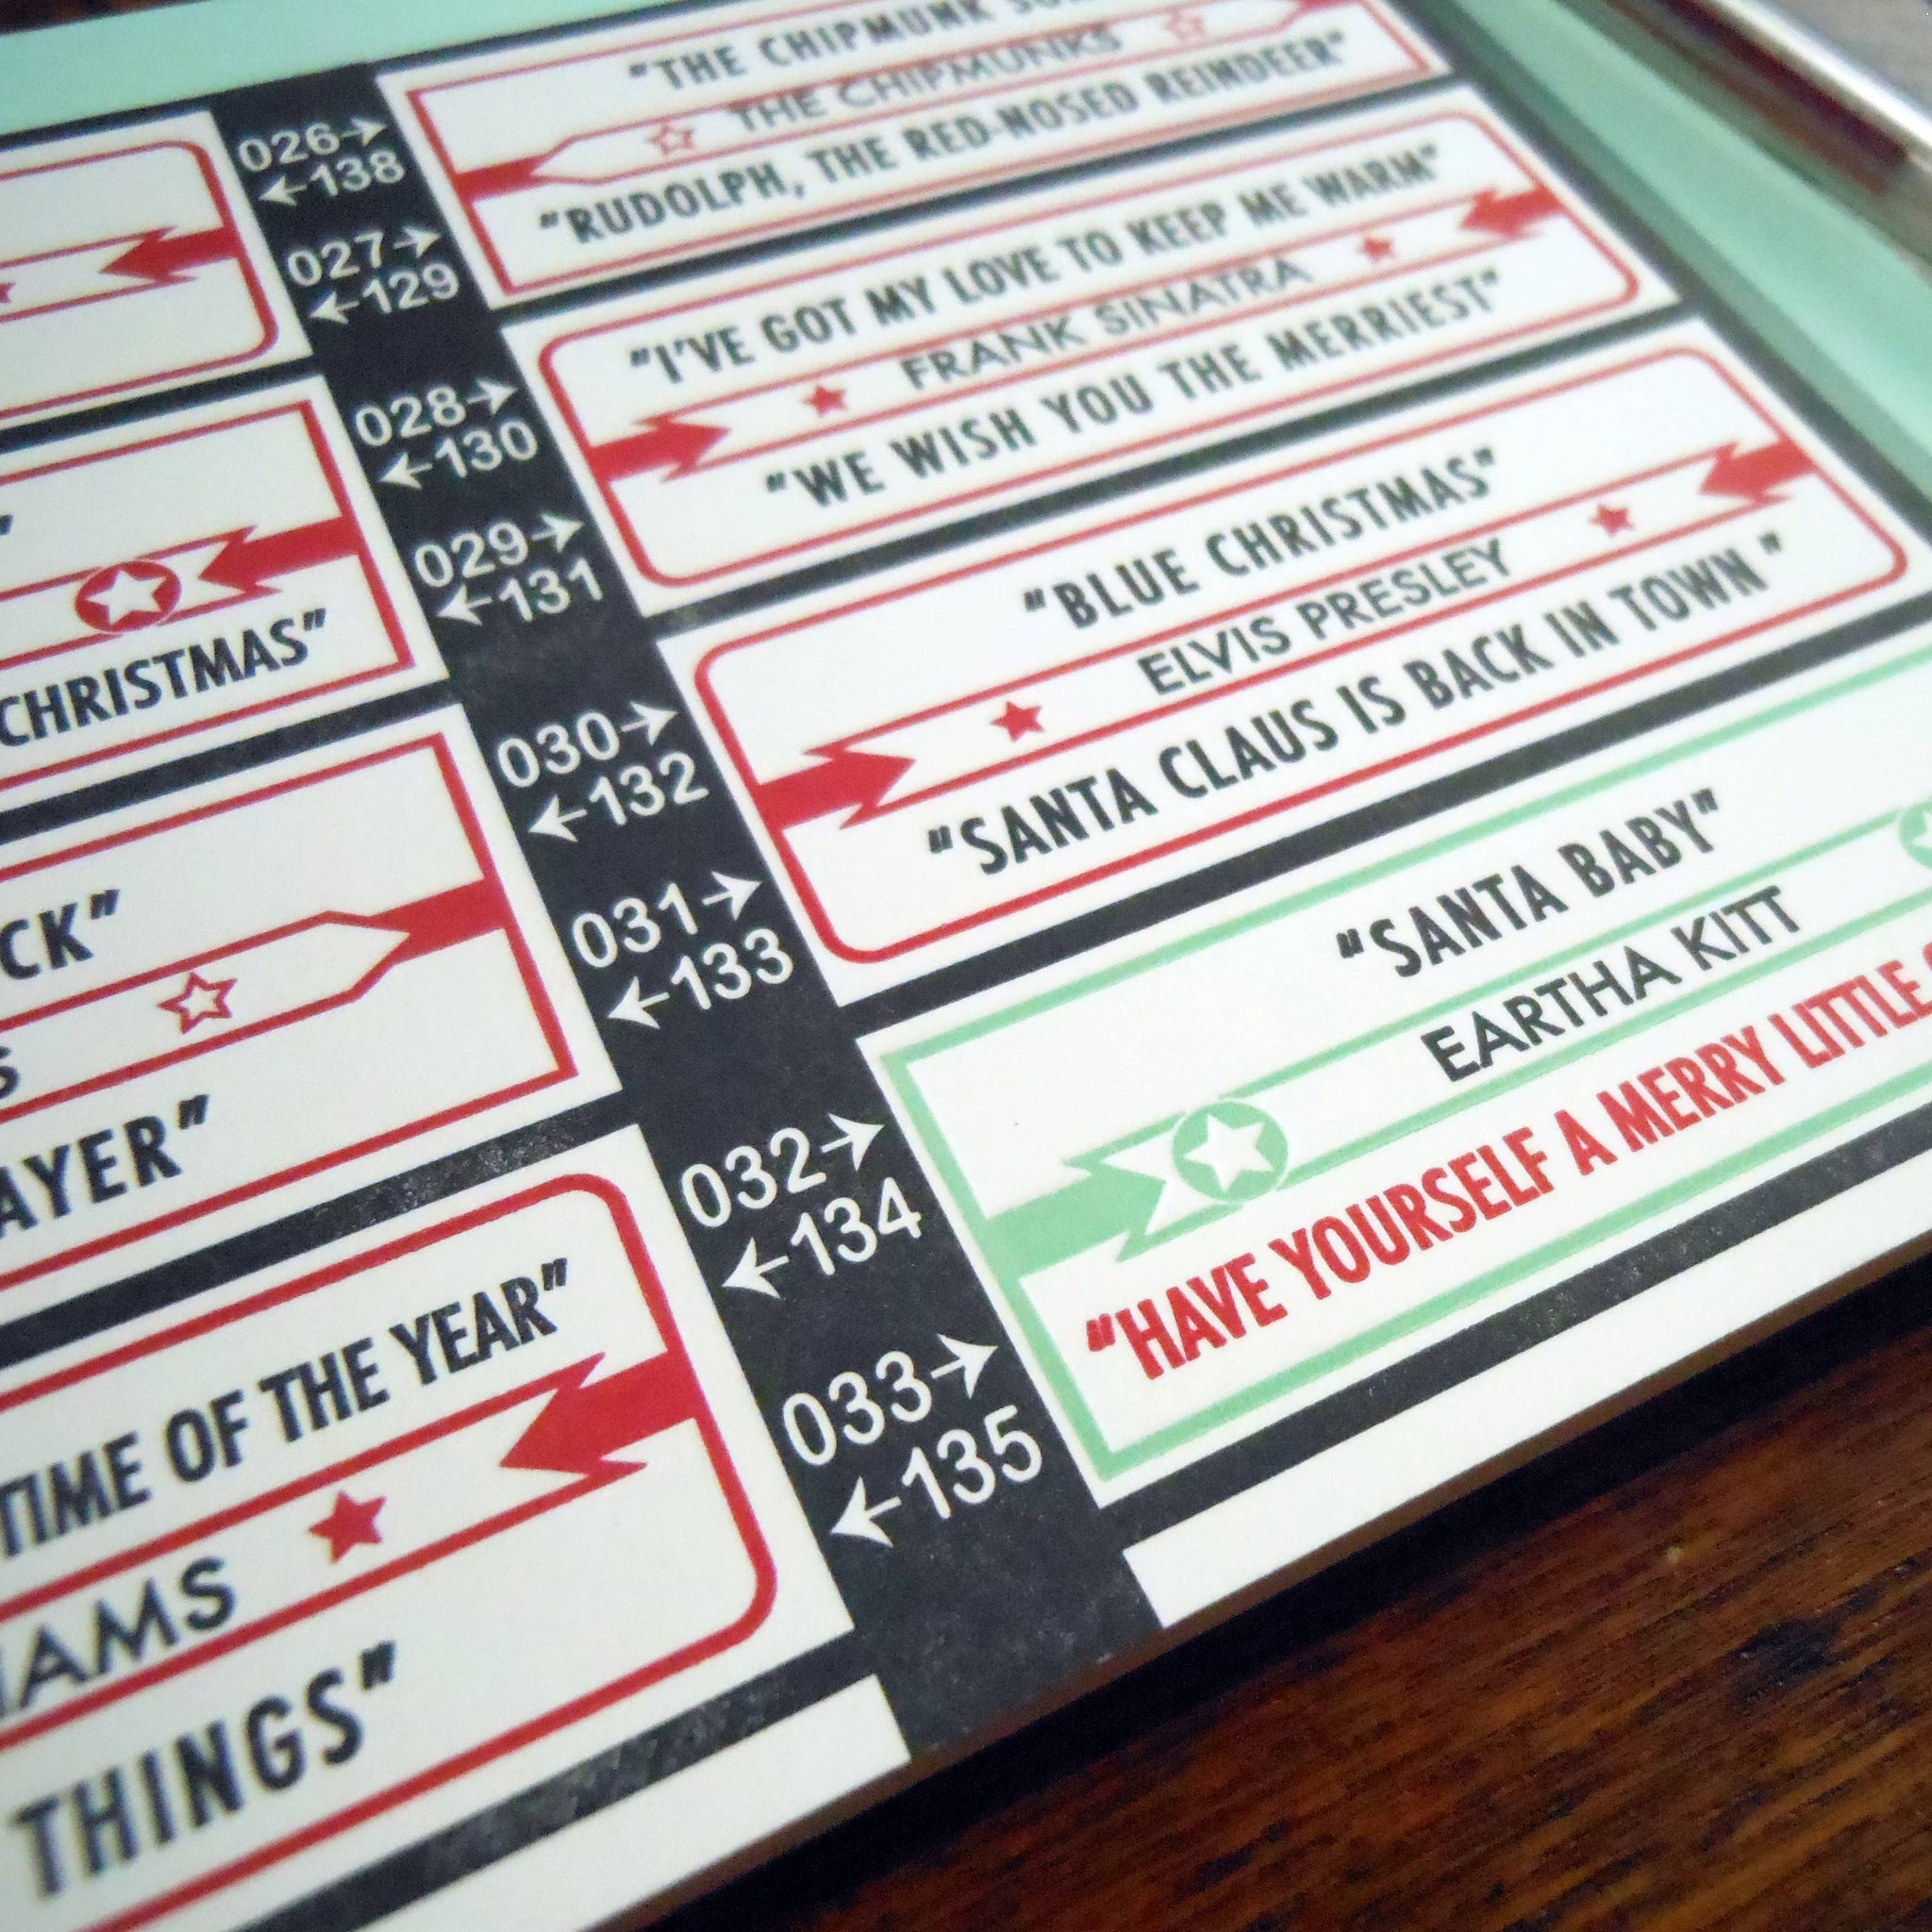 CHRISTMAS"
CK"
S
AYER"
TIME OF THE YEAR"
IAMS
THINGS"
026→
←138
027→
←129
028→
←130
029→
←131
030→
←132
031→
←133
032→
←134
033→
←135
"THE CHIPMUNK
THE CHIPMUNKS
"RUDOLPH, THE RED-NOSED REINDEER"
"I'VE GOT MY LOVE TO KEEP ME WARM"
FRANK SINATRA
"WE WISH YOU THE MERRIEST"
"BLUE CHRISTMAS"
ELVIS PRESLEY
"SANTA CLAUS IS BACK IN TOWN"
"SANTA BABY"
EARTHA KITT
"HAVE YOURSELF A MERRY LITTLE